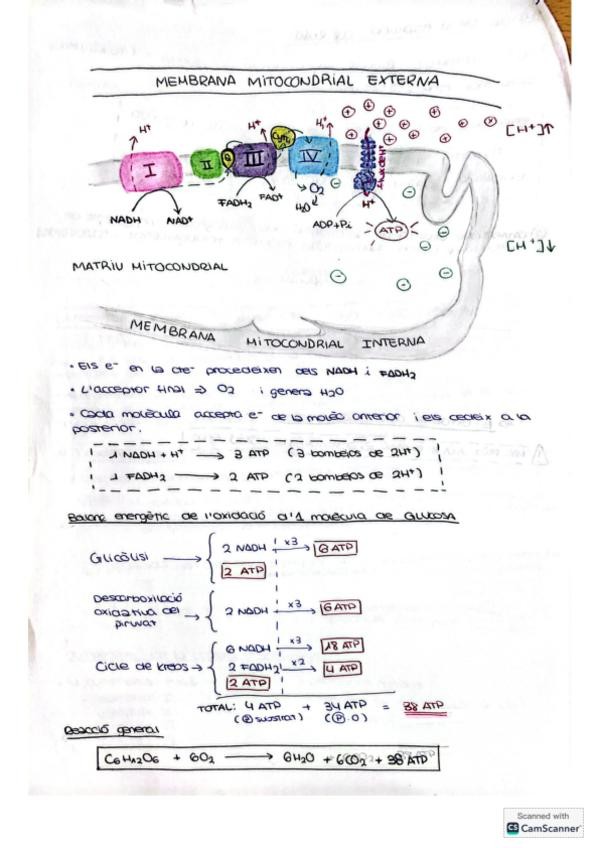 MEMBRANA MITOCONDRIAL EXTERNA
H+ H+ H+ [H+]↑
I II Q III Cyt c IV
NADH NAD+ FADH2 FAD+ O2 H2O H+
ADP+Pi ATP
[H+]↓
MATRIU MITOCONDRIAL
MEMBRANA MITOCONDRIAL INTERNA
• Els e- en la cte- procedeixen dels NADH i FADH2
• L'acceptor final ⇒ O2 i genera H2O
• Cada molècula accepta e- de la molèc anterior i els cedeix a la
posterior.
1 NADH + H+ → 3 ATP (3 bombejos de 2H+)
1 FADH2 → 2 ATP (2 bombejos de 2H+)
Balanç energètic de l'oxidació d'1 molècula de GLUCOSA
Glicòlisi → 2 NADH x3 → 6 ATP
2 ATP
Descarboxilació
oxidativa del
piruvat → 2 NADH x3 → 6 ATP
6 NADH x3 → 18 ATP
Cicle de krebs → 2 FADH2 x2 → 4 ATP
2 ATP
TOTAL: 4 ATP + 34 ATP = 38 ATP
(Ⓟ substrat) (Ⓟ.O)
Reacció general
C6H12O6 + 6O2 → 6H2O + 6CO2 + 38 ATP
Scanned with
CS CamScanner